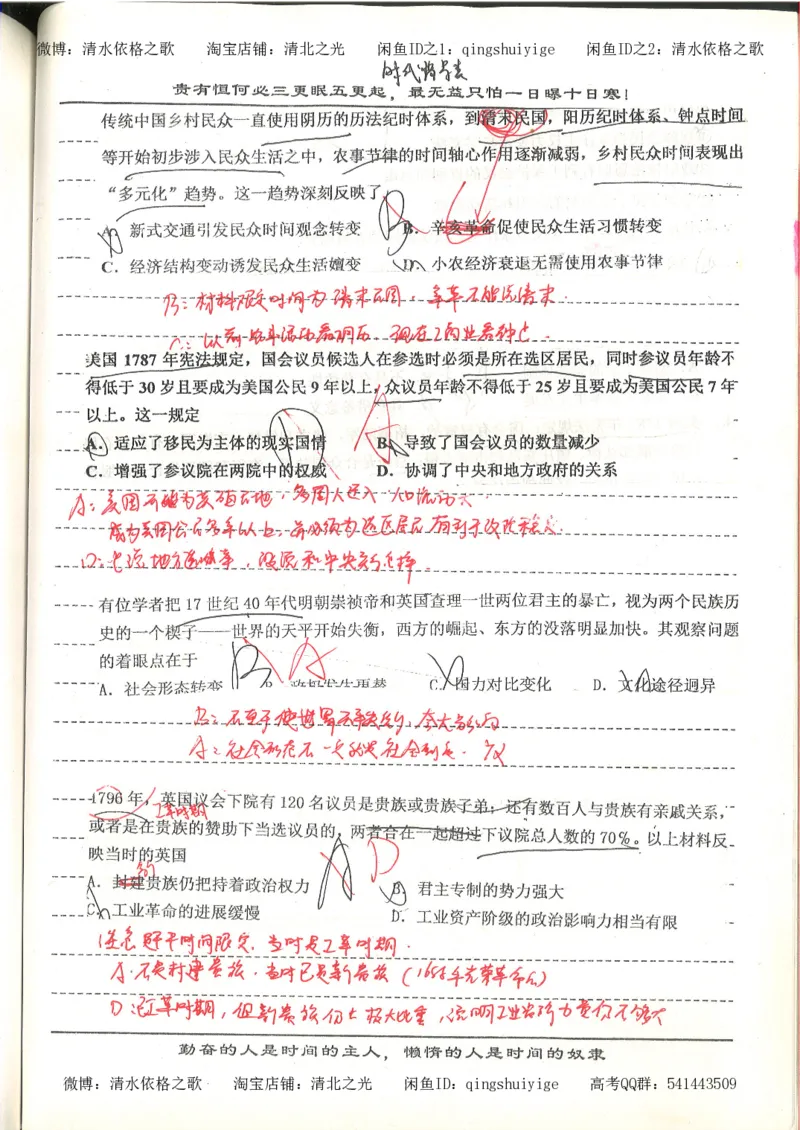 微博：清水依格之歌 淘宝店铺：清北之光 闲鱼ID之1：qingshuiyige 闲鱼ID之2：清水依格之歌
贵有恒何必三更眠五更起，最无益只怕一日曝十日寒！
传统中国乡村民众一直使用阴历的历法纪时体系，到清末民国，阳历纪时体系、钟点时间
等开始初步涉入民众生活之中，农事节律的时间轴心作用逐渐减弱，乡村民众时间表现出
“多元化”趋势。这一趋势深刻反映了
A．新式交通引发民众时间观念转变 B．辛亥革命促使民众生活习惯转变
C．经济结构变动诱发民众生活嬗变 D．小农经济衰退无需使用农事节律
B：材料限定时间为清末民国，辛革不能说清末
美国 1787 年宪法规定，国会议员候选人在参选时必须是所在选区居民，同时参议员年龄不
得低于 30 岁且要成为美国公民 9 年以上，众议员年龄不得低于 25 岁且要成为美国公民 7 年
以上。这一规定
A．适应了移民为主体的现实国情 B．导致了国会议员的数量减少
C．增强了参议院在两院中的权威 D．协调了中央和地方政府的关系
有位学者把 17 世纪 40 年代明朝崇祯帝和英国查理一世两位君主的暴亡，视为两个民族历
史的一个楔子——世界的天平开始失衡，西方的崛起、东方的没落明显加快。其观察问题
的着眼点在于
B A
A．社会形态转变 B．政权发生更替 C．国力对比变化 D．文化途径迥异
1796 年，英国议会下院有 120 名议员是贵族或贵族子弟；还有数百人与贵族有亲戚关系，
工革时期
或者是在贵族的赞助下当选议员的，两者合在一起超过下议院总人数的 70%。以上材料反
映当时的英国
A D
A．封建贵族仍把持着政治权力 B．君主专制的势力强大
C．工业革命的进展缓慢 D．工业资产阶级的政治影响力相当有限
注意题干时间限定，当时是工革时期．
A．不是封建贵族．当时已是新贵族（1688年光荣革命后）
D：工革时期，但新贵族仍占极大比重，说明工业资产力量仍不够大
勤奋的人是时间的主人，懒惰的人是时间的奴隶
微博：清水依格之歌 淘宝店铺：清北之光 闲鱼ID：qingshuiyige 高考QQ群：541443509